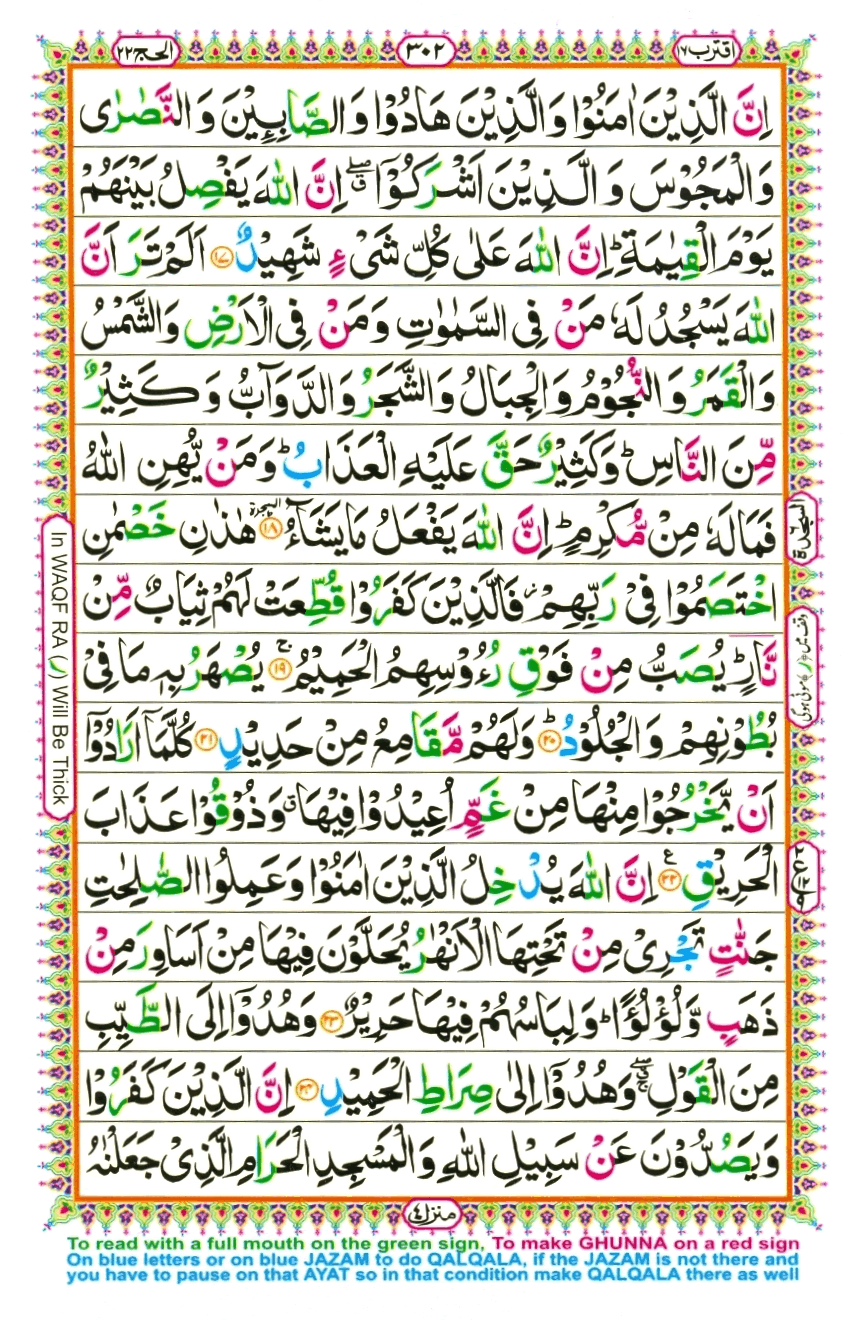 اقترب ١٧
٣٠٢
الحج ٢٢
اِنَّ الَّذِیْنَ اٰمَنُوْا وَالَّذِیْنَ هَادُوْا وَالصَّابِـِٕیْنَ وَالنَّصٰرٰی
وَالْمَجُوْسَ وَالَّذِیْنَ اَشْرَكُوْۤا ۖۗ اِنَّ اللّٰهَ یَفْصِلُ بَیْنَهُمْ
یَوْمَ الْقِیٰمَةِ ؕ اِنَّ اللّٰهَ عَلٰی كُلِّ شَیْءٍ شَهِیْدٌ ۝۱۷ اَلَمْ تَرَ اَنَّ
اللّٰهَ یَسْجُدُ لَهٗ مَنْ فِی السَّمٰوٰتِ وَمَنْ فِی الْاَرْضِ وَالشَّمْسُ
وَالْقَمَرُ وَالنُّجُوْمُ وَالْجِبَالُ وَالشَّجَرُ وَالدَّوَآبُّ وَكَثِیْرٌ
مِّنَ النَّاسِ ؕ وَكَثِیْرٌ حَقَّ عَلَیْهِ الْعَذَابُ ؕ وَمَنْ یُّهِنِ اللّٰهُ
فَمَا لَهٗ مِنْ مُّكْرِمٍ ؕ اِنَّ اللّٰهَ یَفْعَلُ مَا یَشَآءُ ۝۱۸ السجدة هٰذٰنِ خَصْمٰنِ
اخْتَصَمُوْا فِیْ رَبِّهِمْ ؗ فَالَّذِیْنَ كَفَرُوْا قُطِّعَتْ لَهُمْ ثِیَابٌ مِّنْ
نَّارٍ ؕ یُصَبُّ مِنْ فَوْقِ رُءُوْسِهِمُ الْحَمِیْمُ ۝۱۹ۚ یُصْهَرُ بِهٖ مَا فِیْ
بُطُوْنِهِمْ وَالْجُلُوْدُ ۝۲۰ؕ وَلَهُمْ مَّقَامِعُ مِنْ حَدِیْدٍ ۝۲۱ كُلَّمَاۤ اَرَادُوْۤا
اَنْ یَّخْرُجُوْا مِنْهَا مِنْ غَمٍّ اُعِیْدُوْا فِیْهَا ۗ وَذُوْقُوْا عَذَابَ
الْحَرِیْقِ ۝۲۲ ع اِنَّ اللّٰهَ یُدْخِلُ الَّذِیْنَ اٰمَنُوْا وَعَمِلُوا الصّٰلِحٰتِ
جَنّٰتٍ تَجْرِیْ مِنْ تَحْتِهَا الْاَنْهٰرُ یُحَلَّوْنَ فِیْهَا مِنْ اَسَاوِرَ مِنْ
ذَهَبٍ وَّلُؤْلُؤًا ؕ وَلِبَاسُهُمْ فِیْهَا حَرِیْرٌ ۝۲۳ وَهُدُوْۤا اِلَی الطَّیِّبِ
مِنَ الْقَوْلِ ۖۚ وَهُدُوْۤا اِلٰی صِرَاطِ الْحَمِیْدِ ۝۲۴ اِنَّ الَّذِیْنَ كَفَرُوْا
وَیَصُدُّوْنَ عَنْ سَبِیْلِ اللّٰهِ وَالْمَسْجِدِ الْحَرَامِ الَّذِیْ جَعَلْنٰهُ
السجدة
وقف میں (ر) موٹی ہوگی
In WAQF RA (ر) Will Be Thick
منزل ٤
To read with a full mouth on the green sign, To make GHUNNA on a red sign
On blue letters or on blue JAZAM to do QALQALA, if the JAZAM is not there and
you have to pause on that AYAT so in that condition make QALQALA there as well